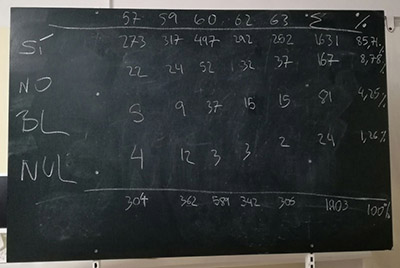 57 59 60 62 63 Σ %
SÍ 273 317 497 292 252 1631 85,71%
NO 22 24 52 32 37 167 8,78%
BL 5 9 37 15 15 81 4,25%
NUL 4 12 3 3 2 24 1,26%
304 362 589 342 306 1903 100%